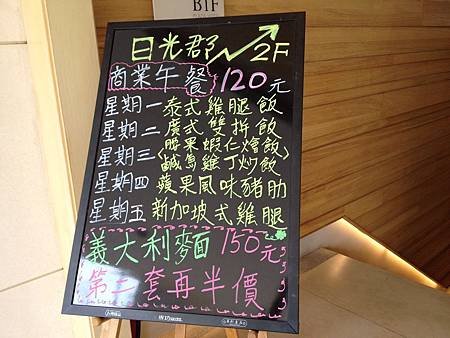 B1F
日光郡 2F
商業午餐 120元
星期一 泰式雞腿飯
星期二 廣式雙拼飯
星期三 腰果蝦仁燴飯
鹹魚雞丁炒飯
星期四 蘋果風味豬肋
星期五 新加坡式雞腿
義大利麵 150元
第二套再半價